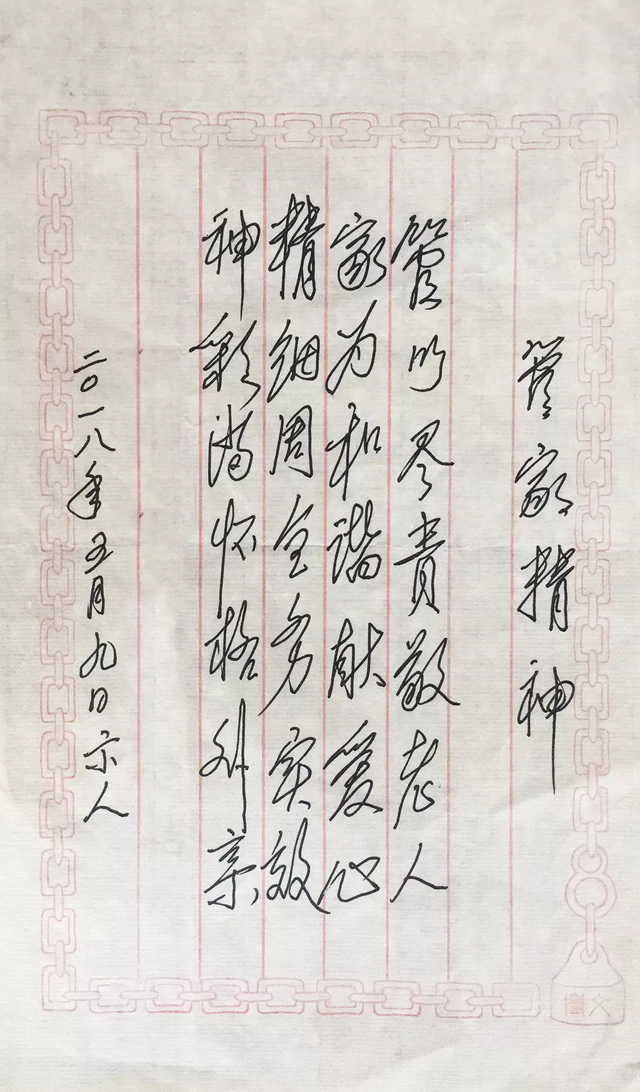 管家精神
管川尽责敬老人
家为和谐献爱心
精细周全务实效
神彩满怀格外亲
二〇一八年五月九日示人